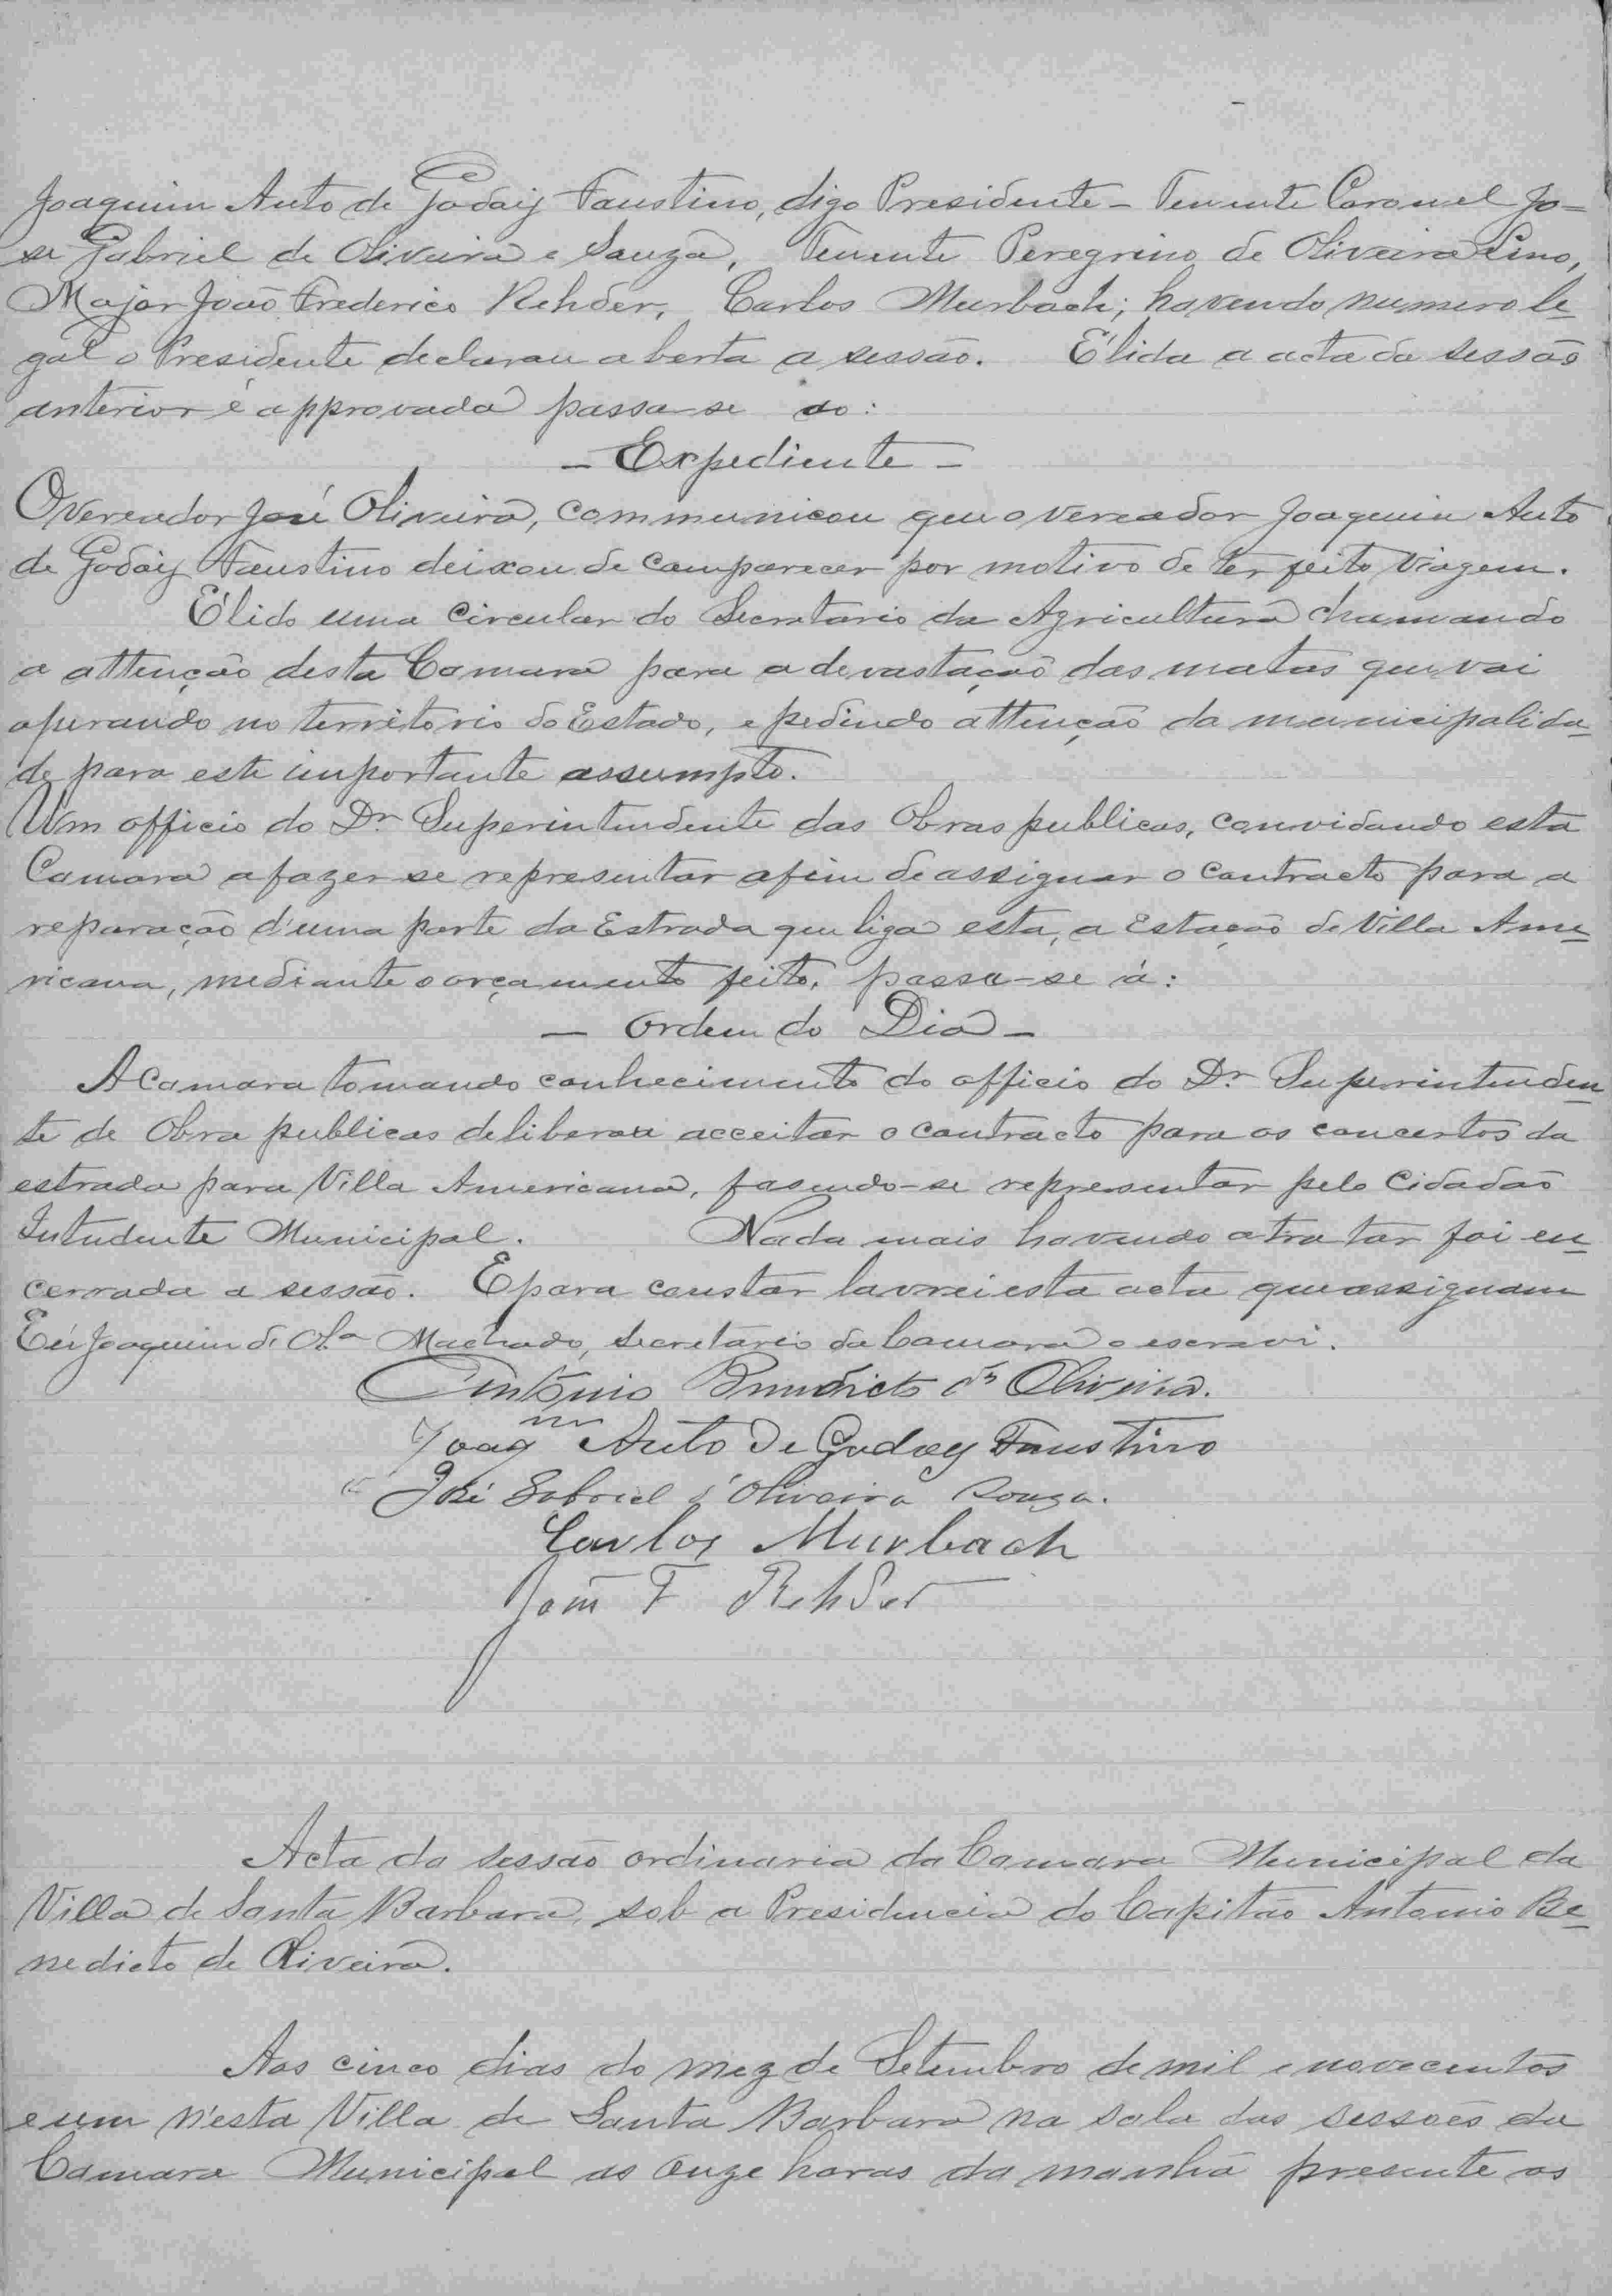 Joaquim Auto de Godoiy Faustino, digo Presidente - Tenente Coronel Jo=
se Gabriel de Oliveira e Souza, Tenente Peregrino de Oliveira Lino,
Major João Frederico Rehder, Carlos Murbach; havendo numero le-
gal o Presidente declarou aberta a sessão. É lida a acta da sessão
anterior é approvada passa-se ao:
- Expediente -
O vereador José Oliveira, communicou que o vereador Joaquim Auto
de Godoiy Faustino deixou de comparecer por motivo de ter feito viagem.
É lido uma circular do Secretario da Agricultura chamando
a attenção desta Camara para a devastação das matas que vai
operando no territorio do Estado, e pedindo attenção da municipalida-
de para este importante assumpto.
Um officio do Dr Superintendente das Obras publicas, convidando esta
Camara a fazer se representar afim de assignar o contracto para a
reparação d'uma parte da Estrada que liga esta, a Estação de Villa Ame-
ricana, mediante o orçamento feito. passa-se á:
- Ordem do Dia -
A Camara tomando conhecimento do officio do Dr Superintenden-
te de Obra publicas deliberou acceitar o contracto para os concertos da
estrada para Villa Americana, fasendo-se representar pelo Cidadão
Intendente Municipal. Nada mais havendo a tratar foi en-
cerrada a sessão. E para constar lavrei esta acta que assignam
Eu Joaquim de Olª Machado, Secretario da Camara o escrevi.
Antonio Benedicto de Oliveira.
Joaqm Auto de Godoy Faustino
José Gabriel d'Oliveira Souza.
Carlos Murbach
João F Rehder
Acta da sessão ordinaria da Camara Municipal da
Villa de Santa Barbara, sob a Presidencia do Capitão Antonio Be-
nedicto de Oliveira.
Aos cinco dias do mez de Setembro de mil e novecentos
e um n'esta Villa de Santa Barbara na sala das sessões da
Camara Municipal as onze horas da manhã presente os